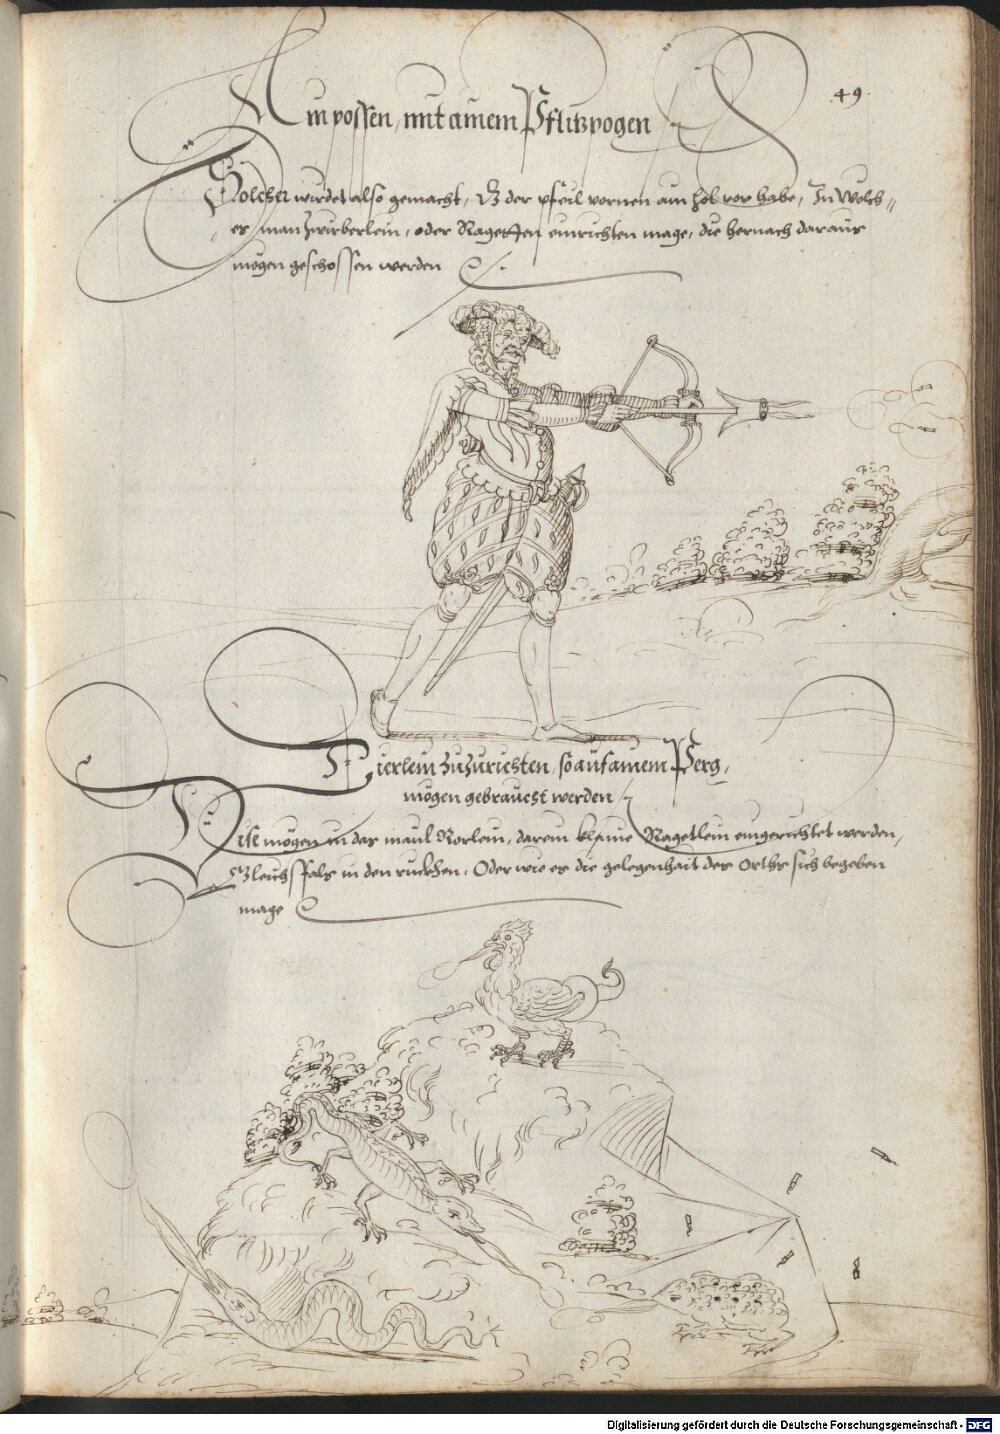 49.
Ain possen, mit ainem Pflitzpogen
Solcher wirdet also gemacht, Dz der pfeil vornen ain hol ror habe, In Welch=
es man Zwirberlein, oder Ragetten einrichten mage, die hernach daraus
mögen geschossen werden
Tierlein zuzurichten, so auf ainem Perg,
mögen gebraucht werden
Dise mögen in das maul Rorlein, darein klaine Ragetlein eingerichtet werden,
Gleichsfals in den rucken, Oder wie es die gelegenhait des Orths sich begeben
mage
Digitalisierung gefördert durch die Deutsche Forschungsgemeinschaft - DFG